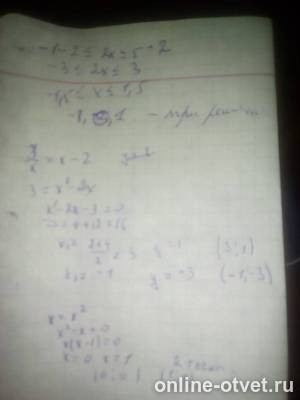 -1-2 ≤ 2x ≤ 5-2
-3 ≤ 2x ≤ 3
-1,5 ≤ x ≤ 1,5
-1, 0, 1 - три
3/x = x - 2
3 = x² - 2x
x² - 2x - 3 = 0
D = 4 + 12 = 16
x₁ = (2+4)/2 = 3 y = 1 (3; 1)
x₂ = -1 y = -3 (-1; -3)
x = x²
x² - x = 0
x(x-1) = 0
x = 0 x = 1
2
online-otvet.ru